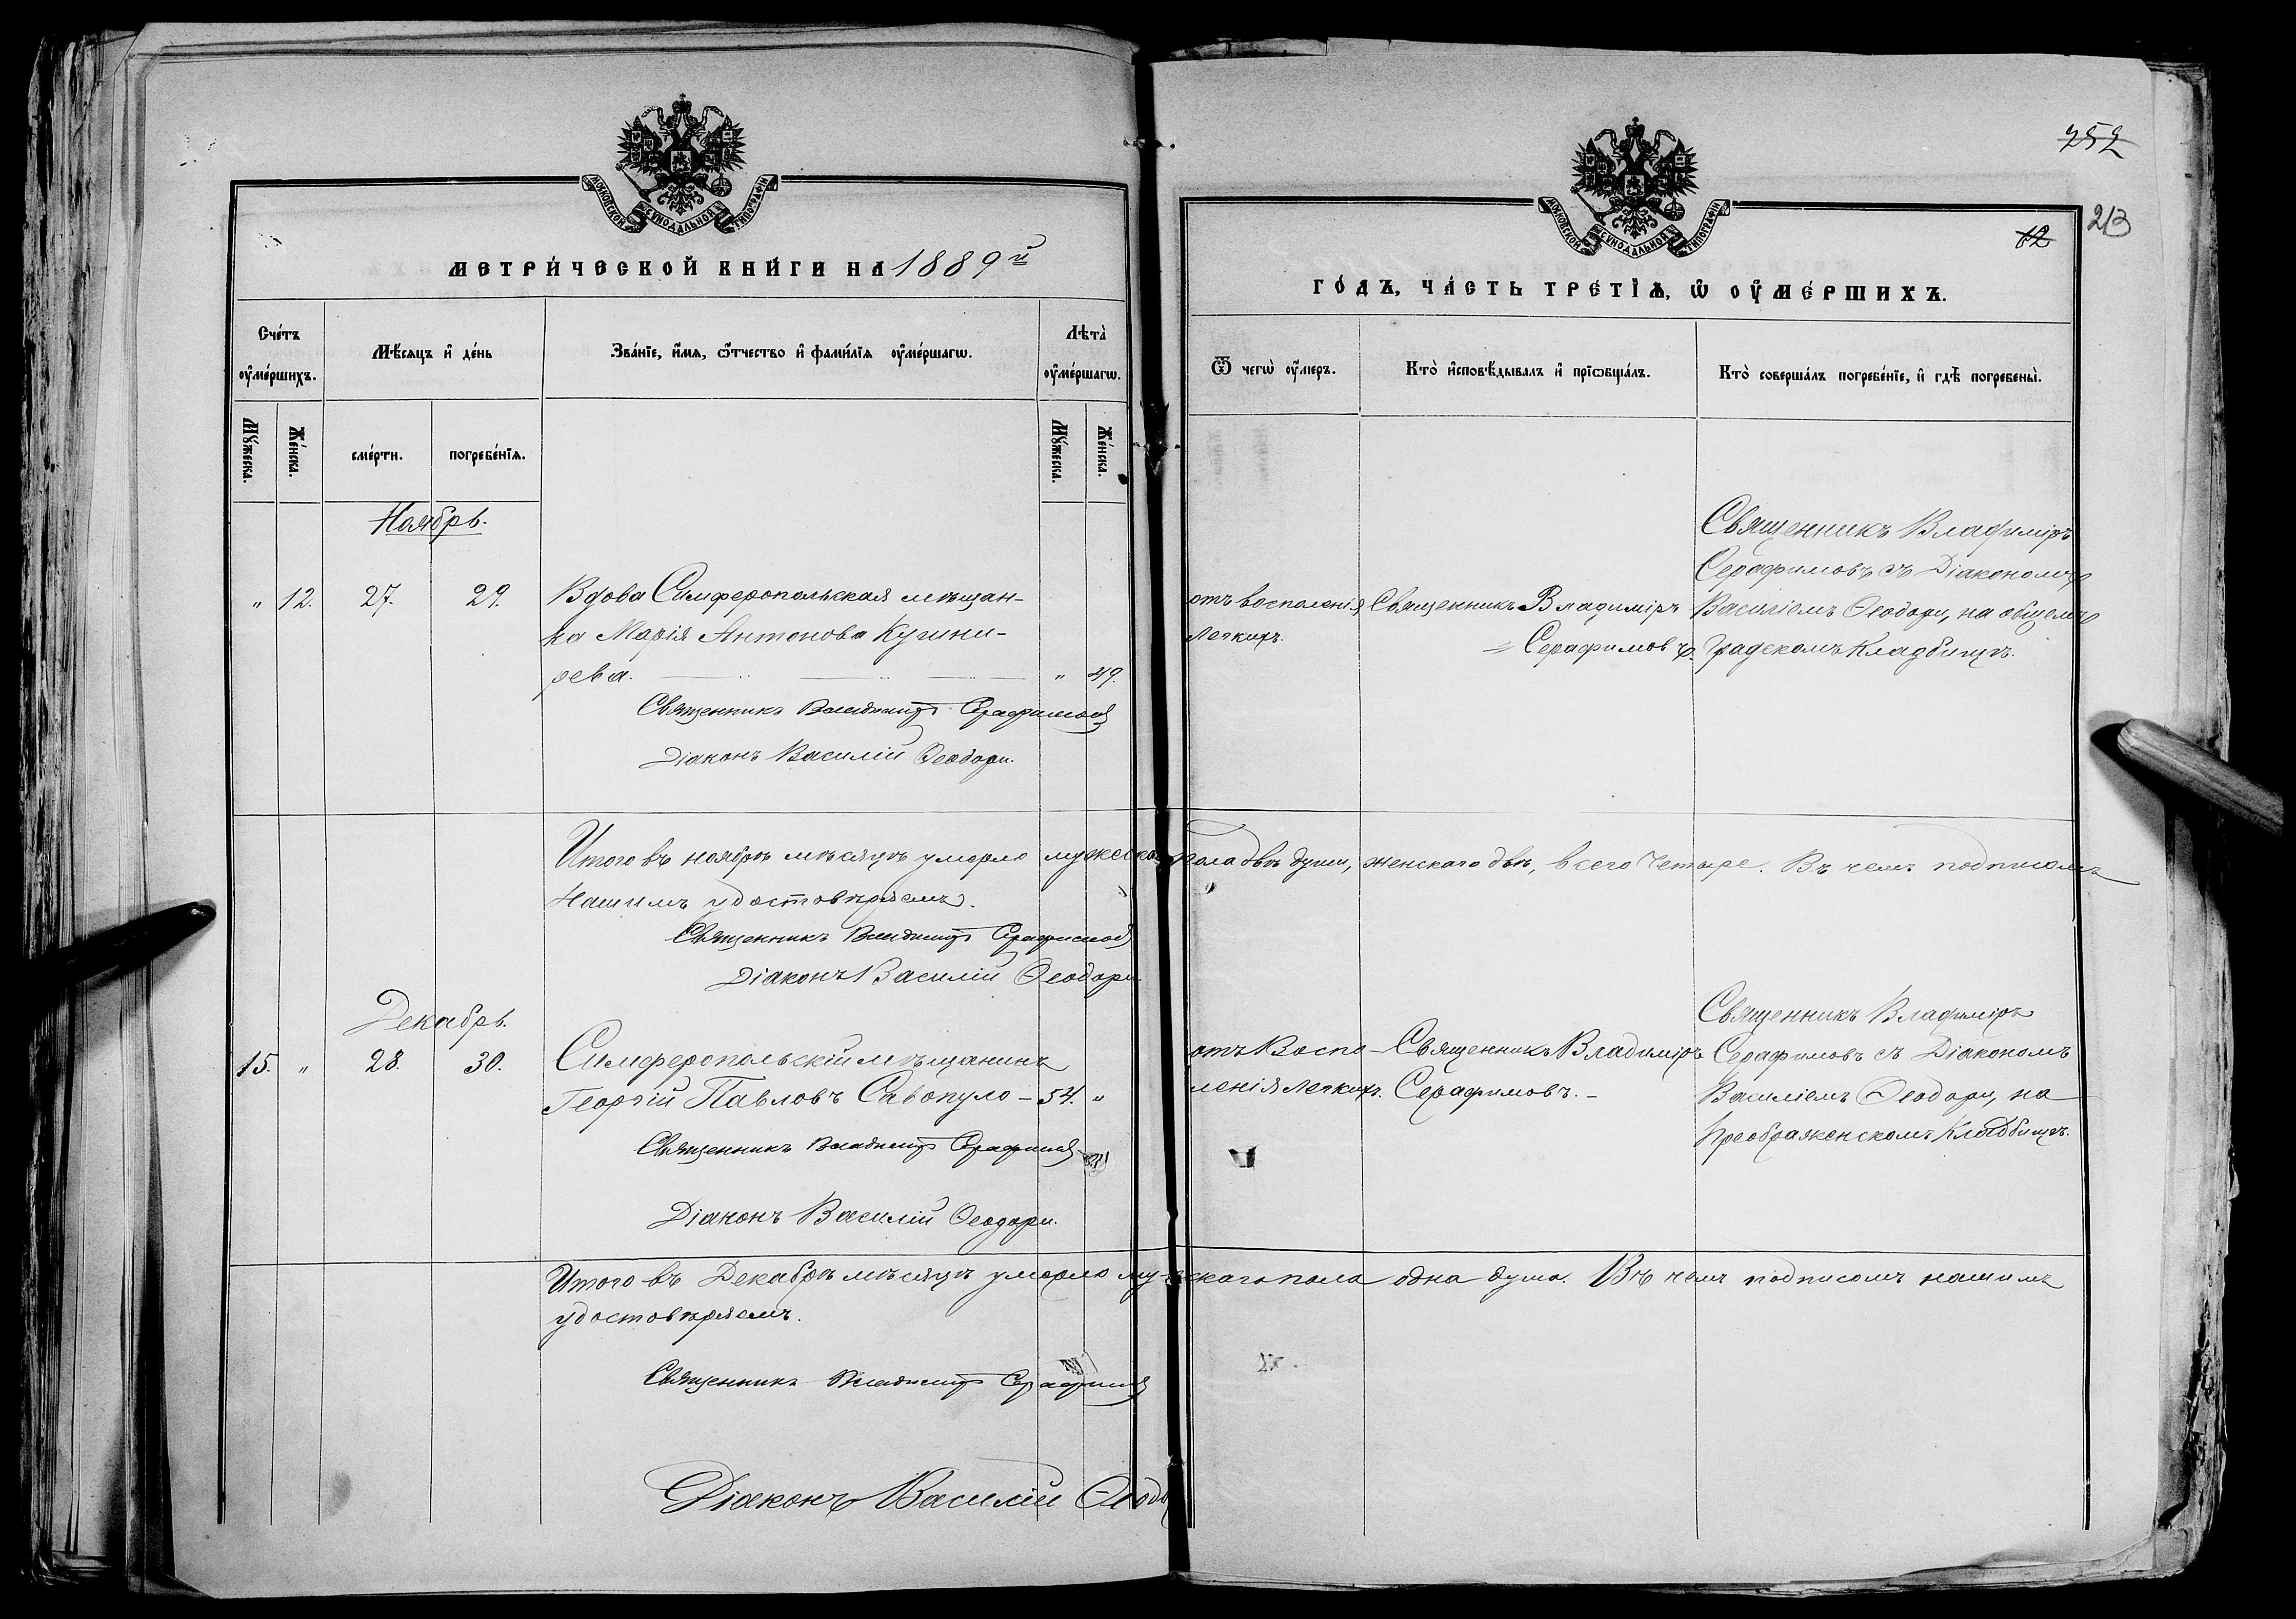 МОСКОВСКОЙ СѴНОДАЛЬНОЙ ТИПОГРАФІИ
МЕТРИ́ЧЕСКОЙ КНИ́ГИ НА 1889 й
Сче́тъ оу҆ме́ршихъ.
Мѣ́сяцъ и҆ де́нь
Зва́нїе, и҆́мѧ, ѻ҆́тчество и҆ фами́лїѧ оу҆ме́ршагѡ.
Лѣта̀ оу҆ме́ршагѡ.
Мꙋ́жеска.
Же́нска.
сме́рти.
погребе́нїѧ.
Мꙋ́жеска.
Же́нска.
Ноябрь.
„ 12. 27. 29. Вдова Симферопольская мѣщан-
ка Марія Антонова Кучини-
рева. „ 49.
Священникъ Владиміръ Серафимовъ
Діаконъ Василій Ѳеодори.
Итого въ ноябрѣ мѣсяцѣ умерло мужескаго пола двѣ души, женскаго двѣ, всего четыре. Въ чемъ подписомъ
нашимъ удостовѣряемъ.
Священникъ Владиміръ Серафимовъ
Діаконъ Василій Ѳеодори
Декабрь.
15. „ 28. 30. Симферопольскій мѣщанинъ
Георгій Павловъ Савопуло – 54. „
Священникъ Владиміръ Серафимовъ
Діаконъ Василій Ѳеодори.
Итого въ Декабрѣ мѣсяцѣ умерло мужескаго пола одна душа. Въ чемъ подписомъ нашимъ
удостовѣряемъ.
Священникъ Владиміръ Серафимовъ
Діаконъ Василій Ѳеодо
752
213
12
МОСКОВСКОЙ СѴНОДАЛЬНОЙ ТИПОГРАФІИ
ГО́ДЪ, ЧА́СТЬ ТРЕ́ТЇѦ, Ѡ҆ ОУ҆МЕ́РШИХЪ.
Ѿ чегѡ̀ оу҆́меръ.
Кто̀ и҆сповѣ́дывалъ и҆ прїѡбща́лъ.
Кто̀ соверша́лъ погребе́нїе, и҆ гдѣ̀ погребены̀.
отъ восполенія
легкихъ.
Священникъ Владиміръ
Серафимовъ.
Священникъ Владиміръ
Серафимовъ съ Діакономъ
Василіемъ Ѳеодори, на общемъ
градскомъ Кладбищѣ.
отъ Воспо-
ленія легкихъ.
Священникъ Владиміръ
Серафимовъ. –
Священникъ Владиміръ
Серафимовъ съ Діакономъ
Василіемъ Ѳеодори, на
Преображенскомъ Кладбищѣ.